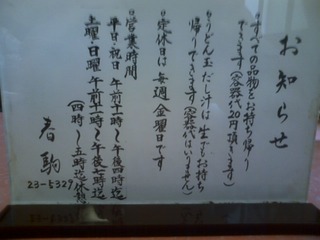 お知らせ
すべての品物をお持ち帰り
できます(容器代20円頂います)
うどん玉だし汁は生でもお持ち
帰りできます(容器代はいりません)
定休日は毎週金曜日です
営業時間
平日・祝日 午前十時〜午後四時迄
土曜・日曜 午前十時〜午後七時迄
(四時〜五時迄休憩)
春駒
23-5327